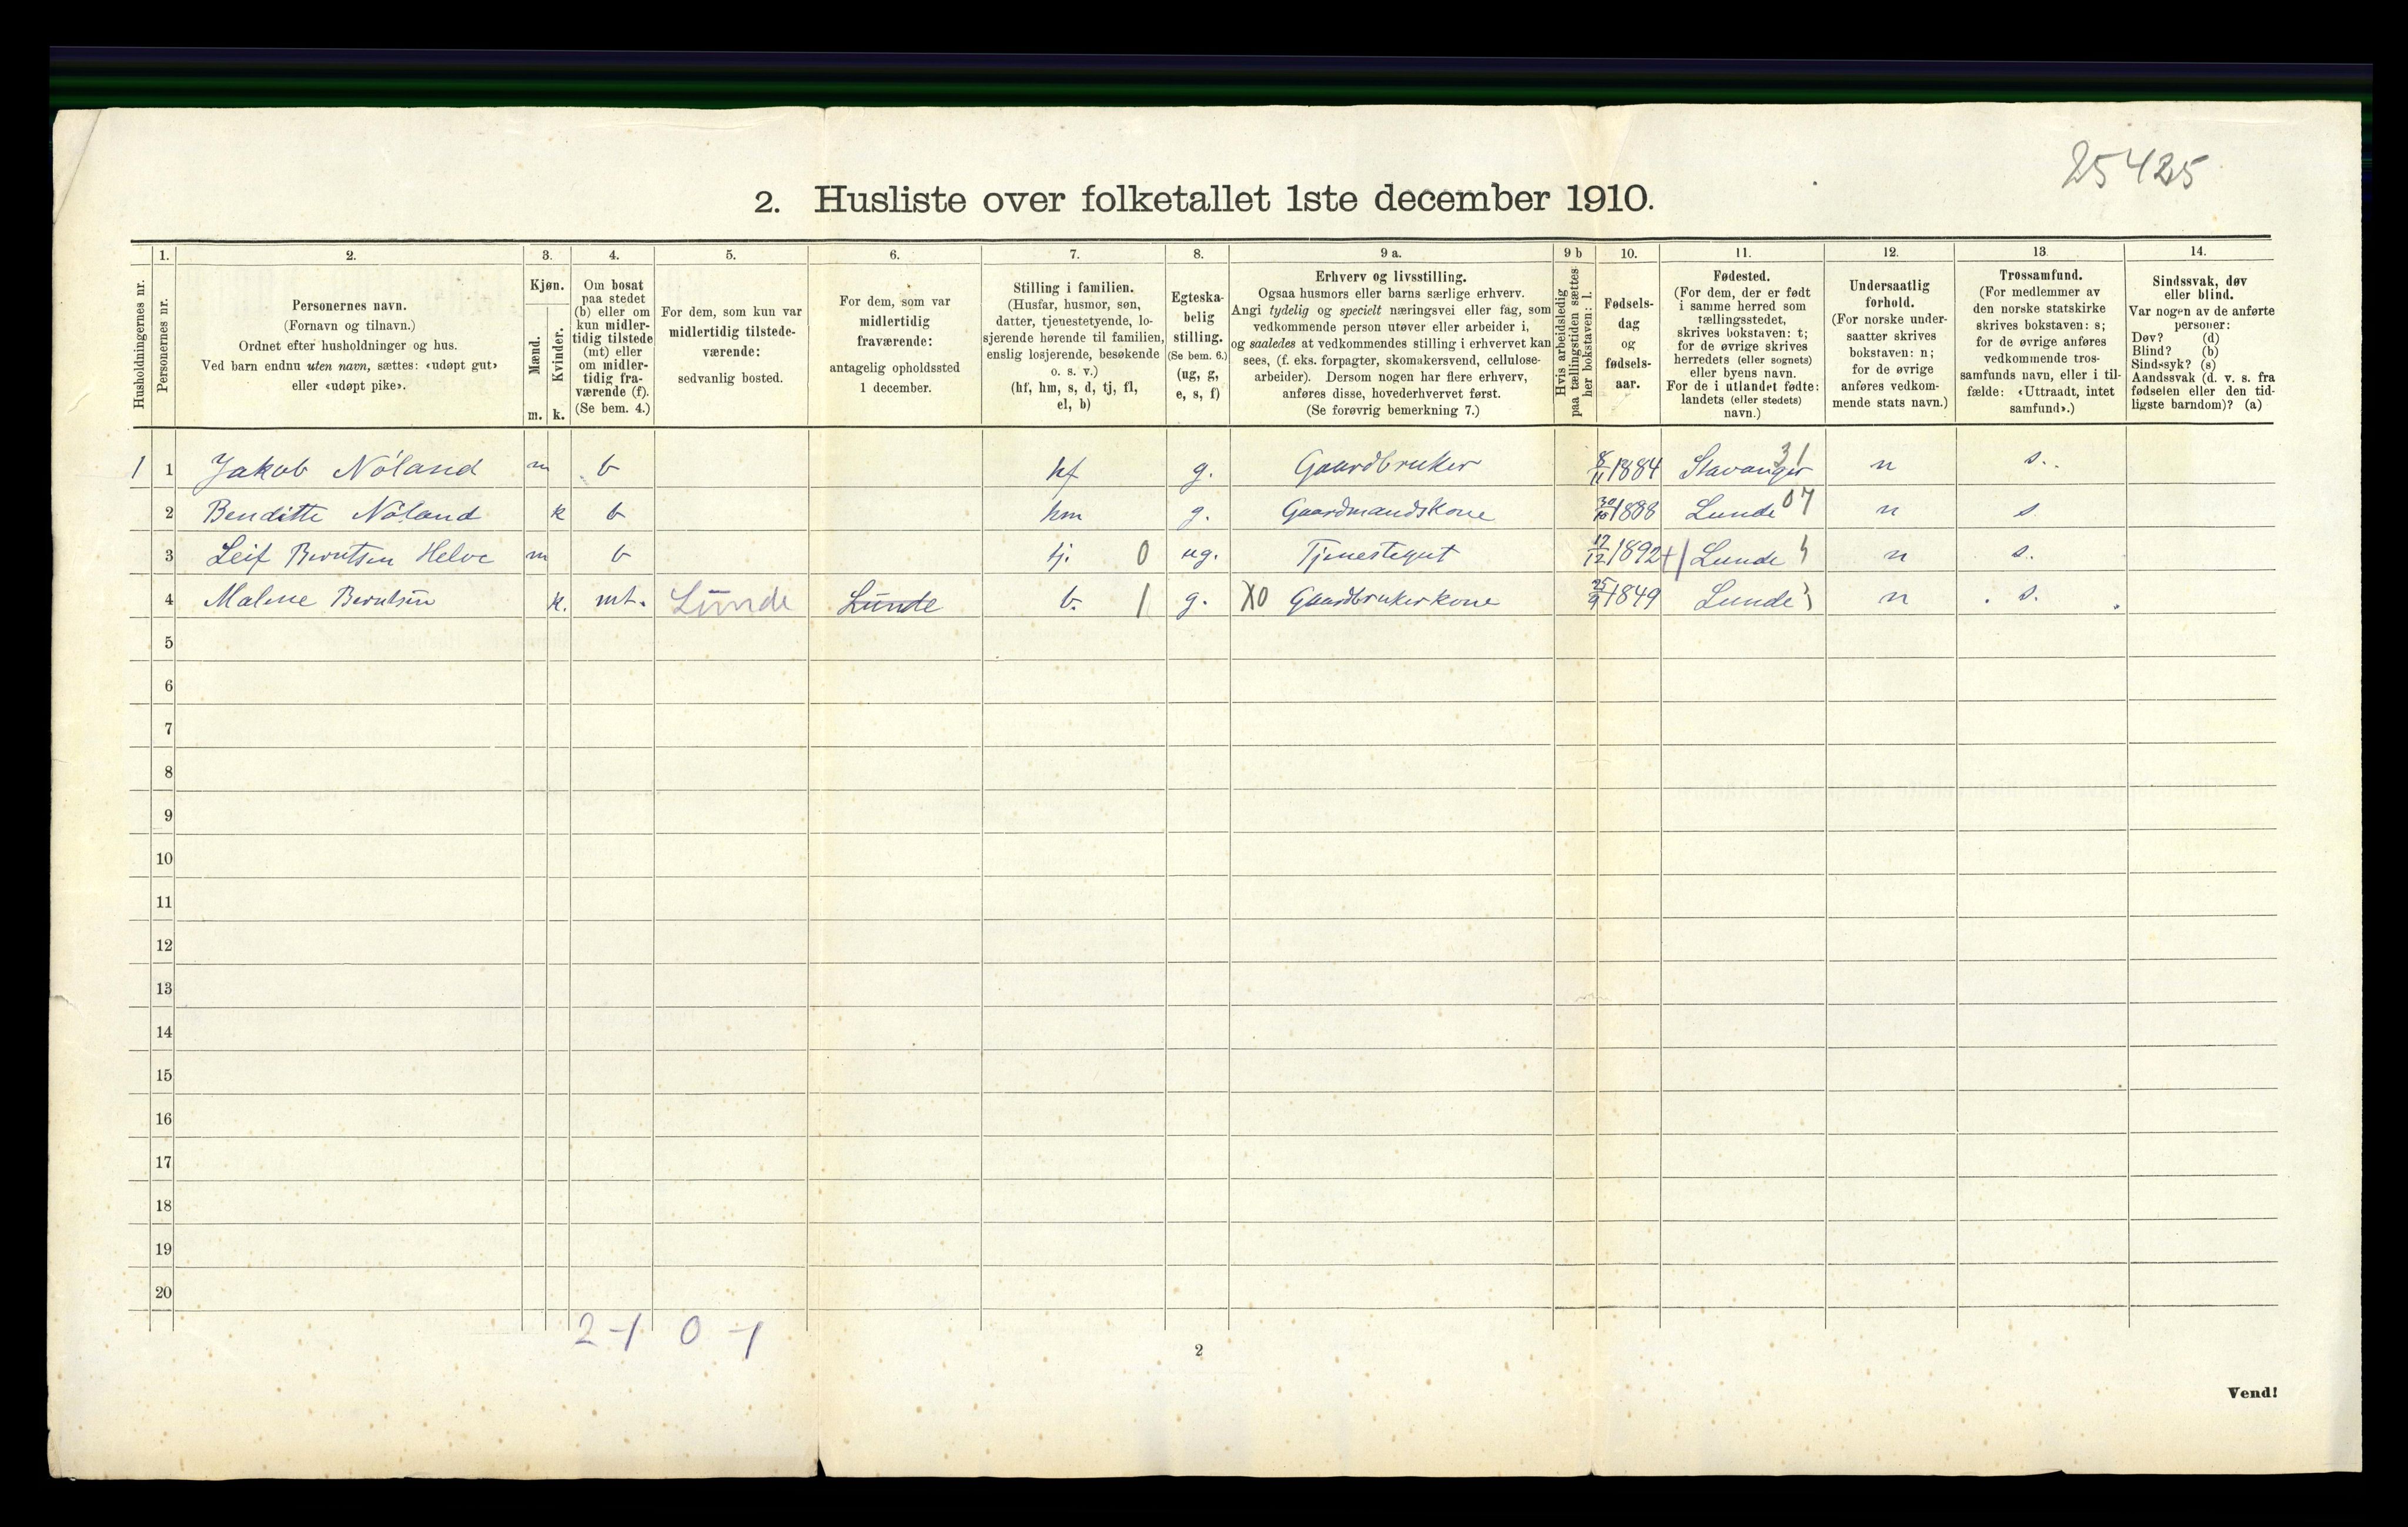 25425
2. Husliste over folketallet 1ste december 1910.
Husholdningernes nr.
1.
Personernes nr.
2.
Personernes navn.
(Fornavn og tilnavn.)
Ordnet efter husholdninger og hus.
Ved barn endnu uten navn, sættes: «udøpt gut»
eller «udøpt pike».
3.
Kjøn.
Mænd.
Kvinder.
m. k.
4.
Om bosat
paa stedet
(b) eller om
kun midler-
tidig tilstede
(mt) eller
om midler-
tidig fra-
værende (f).
(Se bem. 4.)
5.
For dem, som kun var
midlertidig tilstede-
værende:
sedvanlig bosted.
6.
For dem, som var
midlertidig
fraværende:
antagelig opholdssted
1 december.
7.
Stilling i familien.
(Husfar, husmor, søn,
datter, tjenestetyende, lo-
sjerende hørende til familien,
enslig losjerende, besøkende
o. s. v.)
(hf, hm, s, d, tj, fl,
el, b)
8.
Egteska-
belig
stilling.
(Se bem. 6.)
(ug, g,
e, s, f)
9 a.
Erhverv og livsstilling.
Ogsaa husmors eller barns særlige erhverv.
Angi tydelig og specielt næringsvei eller fag, som
vedkommende person utøver eller arbeider i,
og saaledes at vedkommendes stilling i erhvervet kan
sees, (f. eks. forpagter, skomakersvend, cellulose-
arbeider). Dersom nogen har flere erhverv,
anføres disse, hovederhvervet først.
(Se forøvrig bemerkning 7.)
9 b
Hvis arbeidsledig
paa tællingstiden sættes
her bokstaven: l.
10.
Fødsels-
dag
og
fødsels-
aar.
11.
Fødested.
(For dem, der er født
i samme herred som
tællingsstedet,
skrives bokstaven: t;
for de øvrige skrives
herredets (eller sognets)
eller byens navn.
For de i utlandet fødte:
landets (eller stedets)
navn.)
12.
Undersaatlig
forhold.
(For norske under-
saatter skrives
bokstaven: n;
for de øvrige
anføres vedkom-
mende stats navn.)
13.
Trossamfund.
(For medlemmer av
den norske statskirke
skrives bokstaven: s;
for de øvrige anføres
vedkommende tros-
samfunds navn, eller i til-
fælde: «Uttraadt, intet
samfund».)
14.
Sindssvak, døv
eller blind.
Var nogen av de anførte
personer:
Døv? (d)
Blind? (b)
Sindssyk? (s)
Aandssvak (d. v. s. fra
fødselen eller den tid-
ligste barndom)? (a)
1 1 Jakob Nöland m b hf g. Gaardbruker 8/11 1884 Stavanger 31 n s.
2 Benditte Nöland k b hm g. Gaardmandskone 30/10 1888 Lunde 07 n s
3 Leif Berntsen Helve m b tj. 0 ug. Tjenestegut 17/12 1892 Lunde n s.
4 Malene Berntsen k. mt. Lunde Lunde b. 1 g. X0 Gaardbrukerkone 25/9 1849 Lunde n s.
5
6
7
8
9
10
11
12
13
14
15
16
17
18
19
20
2-1 0-1
2
Vend!